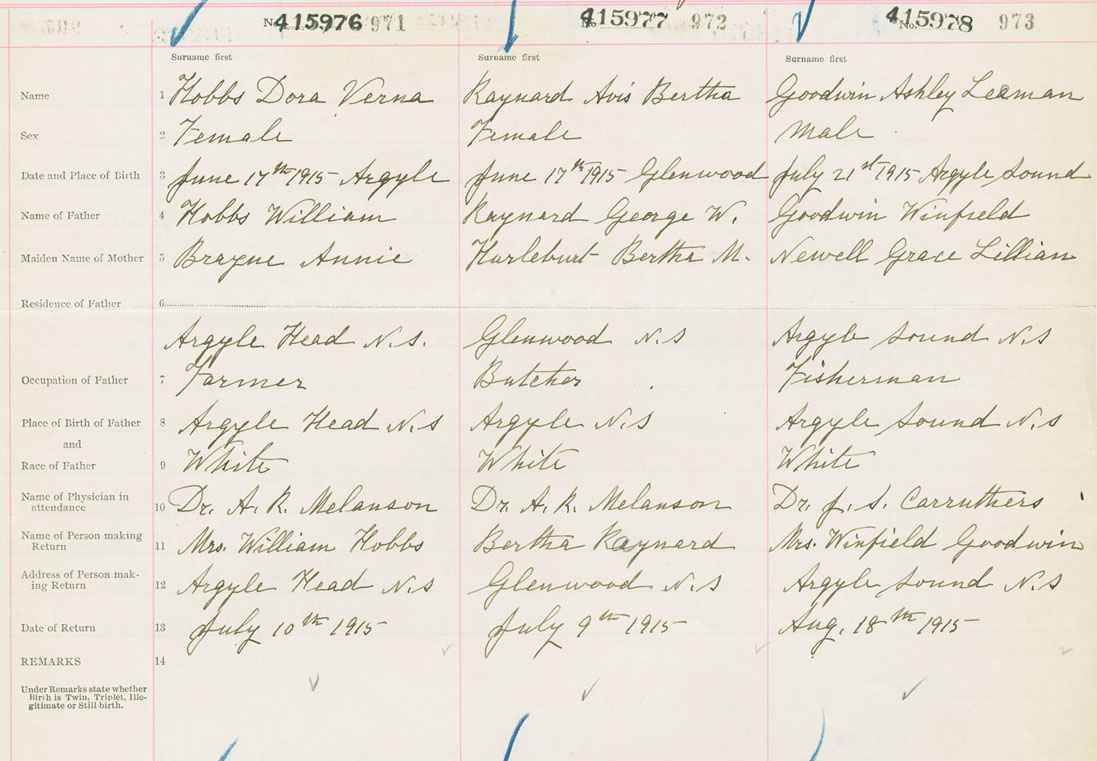 No. 415976 971 No. 415977 972 No. 415978 973
Surname first Surname first Surname first
Name 1 Hobbs Dora Verna Raynard Avis Bertha Goodwin Ashley Leaman
Sex 2 Female Female Male
Date and Place of Birth 3 June 17th 1915 Argyle June 17th 1915 Glenwood July 21st 1915 Argyle Sound
Name of Father 4 Hobbs William Raynard George W. Goodwin Winfield
Maiden Name of Mother 5 Brayne Annie Hurleburt Bertha M. Newell Grace Lillian
Residence of Father 6
Argyle Head N.S. Glenwood N.S Argyle Sound N.S
Occupation of Father 7 Farmer Butcher Fisherman
Place of Birth of Father 8 Argyle Head N.S Argyle N.S Argyle Sound N.S
and
Race of Father 9 White White White
Name of Physician in
attendance 10 Dr. A. R. Melanson Dr. A. R. Melanson Dr. J. S. Carruthers
Name of Person making
Return 11 Mrs. William Hobbs Bertha Raynard Mrs. Winfield Goodwin
Address of Person mak-
ing Return 12 Argyle Head N.S Glenwood N.S Argyle Sound N.S
Date of Return 13 July 10th 1915 July 9th 1915 Aug. 18th 1915
REMARKS 14
Under Remarks state whether
Birth is Twin, Triplet, Ille-
gitimate or Still-birth.